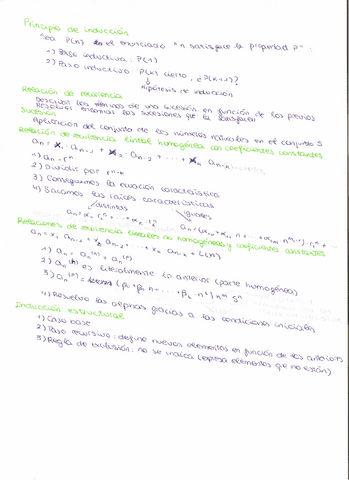 Principio de inducción
Sea P(n) el enunciado "n satisface la propiedad P":
1) Base inductiva: P(1)
2) Paso inductivo: P(k) cierto, ¿P(k+1)?
hipótesis de inducción
Relación de recurrencia
Describir los términos de una sucesión en función de los previos
Resolver: encontrar las sucesiones que la satisfacen
Sucesión
Aplicación del conjunto de los números naturales en el conjunto S
Relación de recurrencia lineal homogénea con coeficientes constantes
1) aₙ = rⁿ
2) Dividir por rⁿ⁻ᵏ
3) Conseguimos la ecuación característica
4) Sacamos las raíces características
distintas iguales
Relaciones de recurrencia lineales no homogéneas y coeficientes constantes
2) es literalmente lo anterior (parte homogénea)
4) Resuelve las alphas gracias a las condiciones iniciales
Inducción estructural
1) Caso base
2) Paso recursivo: define nuevos elementos en función de los anteriores
3) Regla de exclusión: no se indica (expresa elementos que no están)